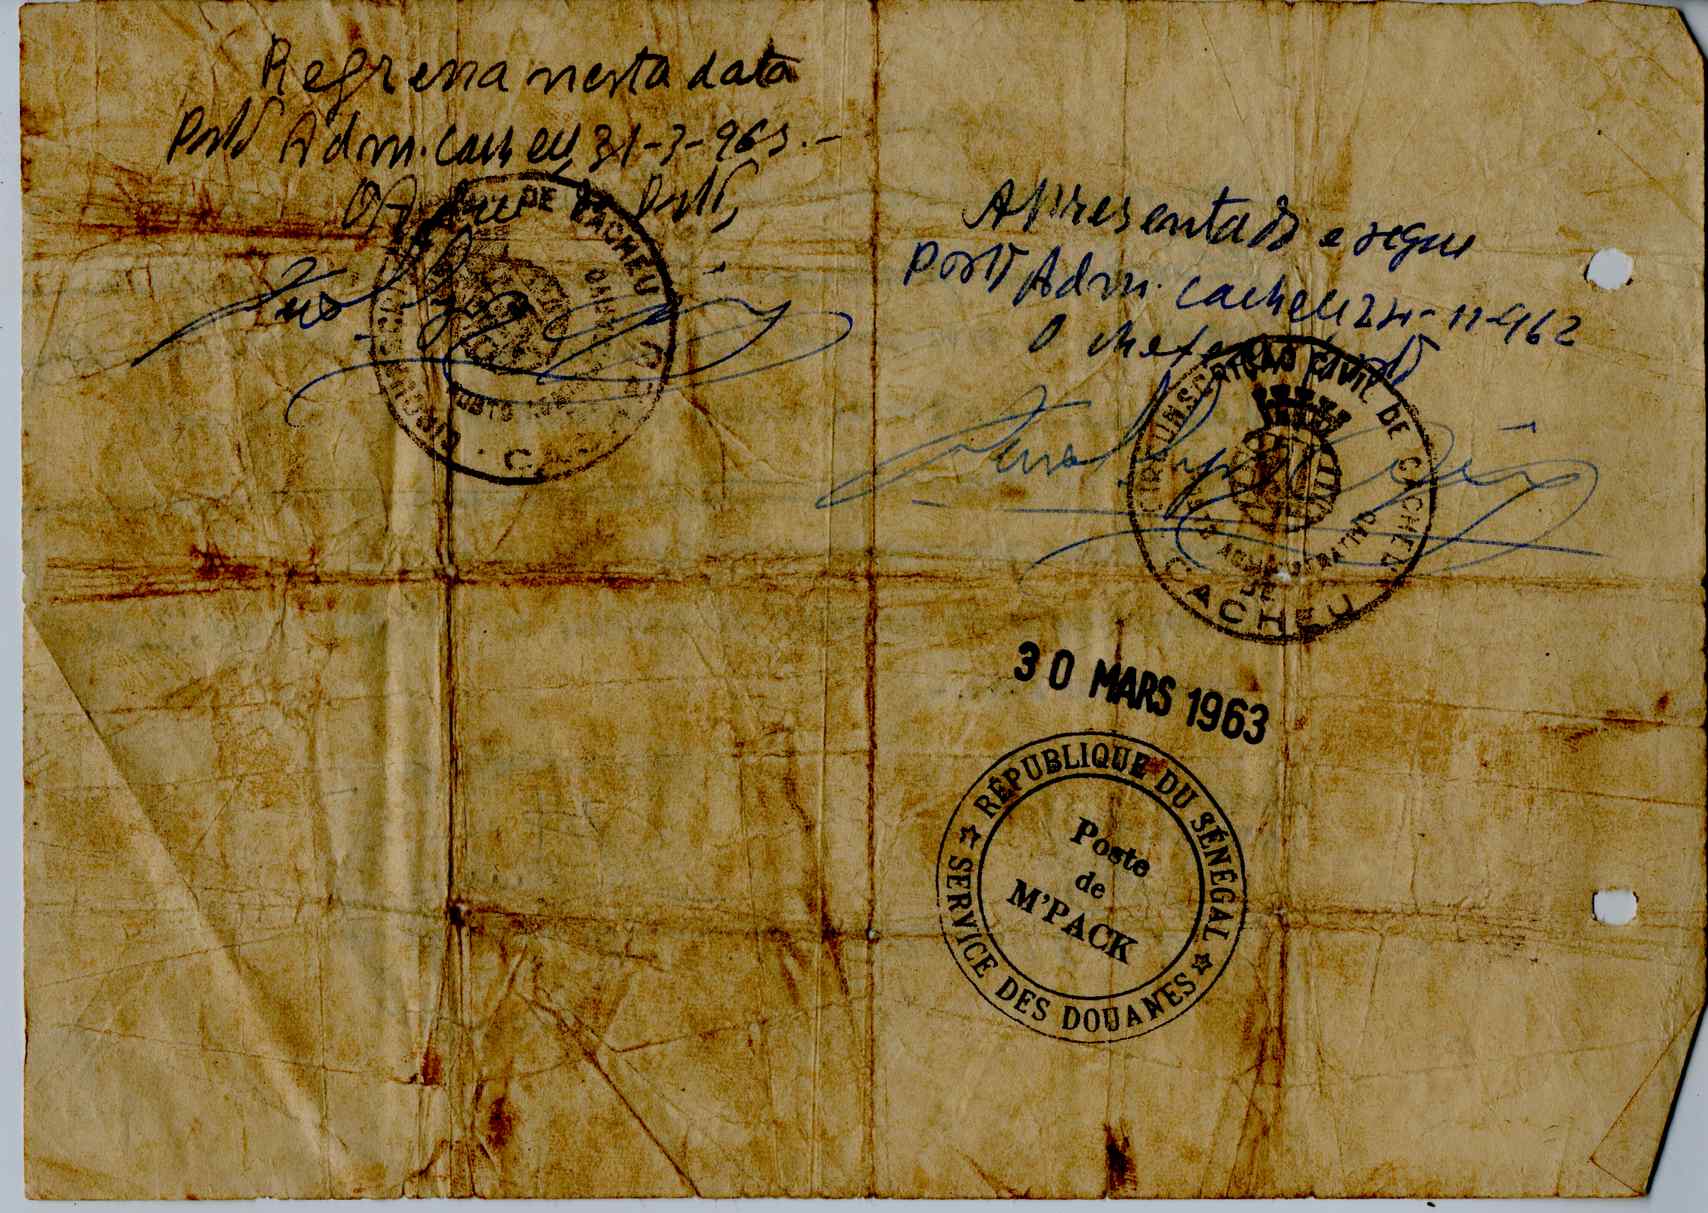 Regressa nesta data
Posto Adm. Cacheu, 31-3-963.-
O Chefe Posto,
CIRCUNSCRIÇÃO DE CACHEU
POSTO
Apresentado e segue
Posto Adm. Cacheu 24-11-962
O chefe
CIRCUNSCRIÇÃO CIVIL DE CACHEU
POSTO ADMINISTRATIVO
DE
CACHEU
30 MARS 1963
RÉPUBLIQUE DU SÉNÉGAL
Poste
de
M'PACK
SERVICE DES DOUANES